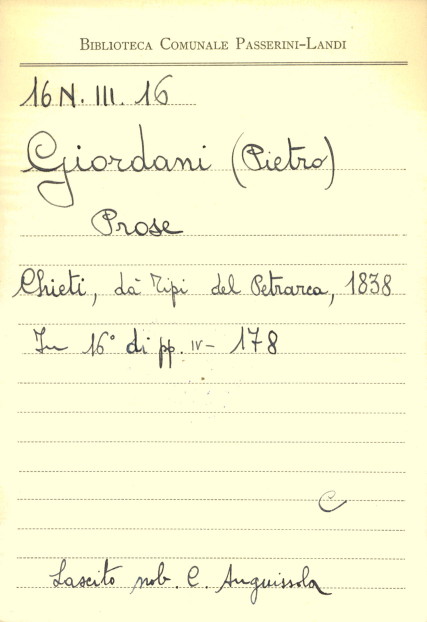 BIBLIOTECA COMUNALE PASSERINI-LANDI
16 N. III. 16
Giordani (Pietro)
Prose
Chieti, dà Tipi del Petrarca, 1838
In 16° di pp. IV- 178
C
Lascito nob. C. Anguissola